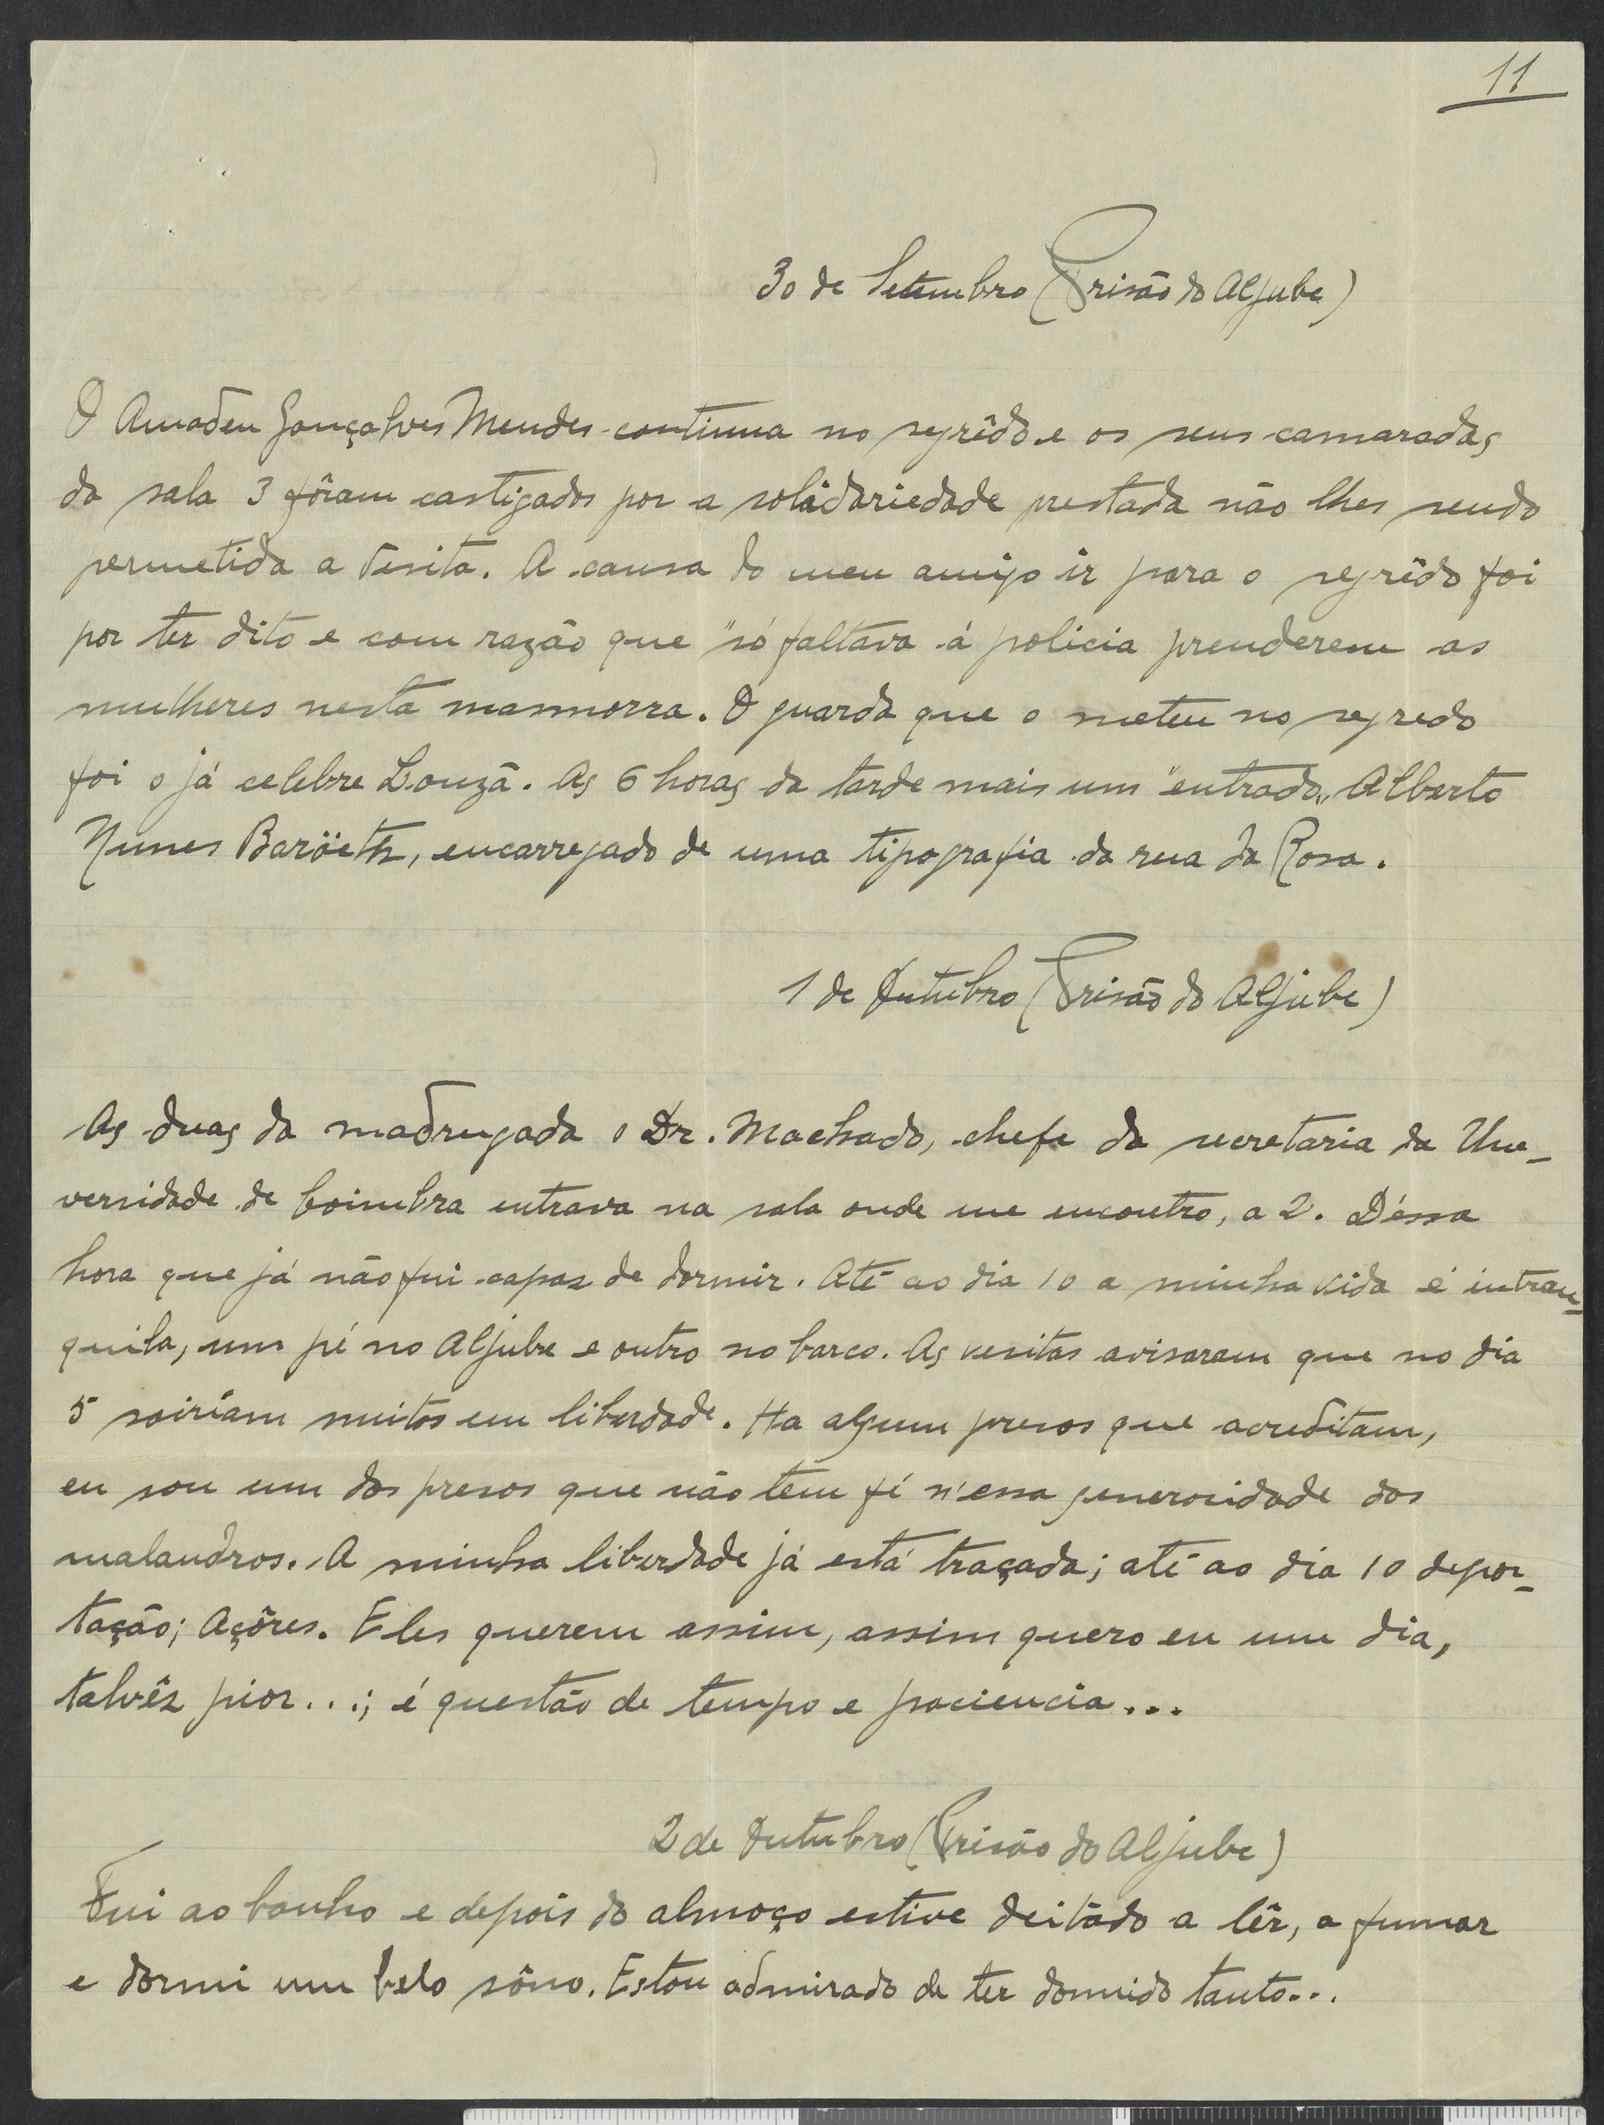 11
30 de Setembro (Prisão do Aljube)
O Amadeu Gonçalves Mendes continua no segrêdo e os seus camaradas
da sala 3 fôram castigados por a solidariedade prestada não lhes sendo
permetida a vesita. A causa do meu amigo ir para o segrêdo foi
por ter dito e com razão que "só faltava á policia prenderem as
mulheres nesta masmorra. O guarda que o meteu no segredo
foi o já celebre Louzã. As 6 horas da tarde mais um "entrado„ Alberto
Nunes Baröeth, encarregado de uma tipografia da rua da Rosa.
1 de Outubro (Prisão do Aljube)
As duas da madrugada o Dr. Machado, chefe da secretaria da Une-
versidade de Coimbra entrava na sala onde me encontro, a 2. Déssa
hora que já não fui capaz de dormir. Até ao dia 10 a minha vida é intran-
quila, um pé no Aljube e outro no barco. As vesitas avisaram que no dia
5 sairíam muitos em liberdade. Ha algum presos que acreditam,
eu sou um dos presos que não tem fé n'essa generosidade dos
malandros. A minha liberdade já está traçada; até ao dia 10 depor-
tação; Açôres. Eles querem assim, assim quero eu um dia,
talvêz pior...; é questão de tempo e paciencia...
2 de Outubro (Prisão do Aljube)
Fui ao banho e depois do almoço estive deitado a lêr, a fumar
e dormi um belo sôno. Estou admirado de ter domido tanto...